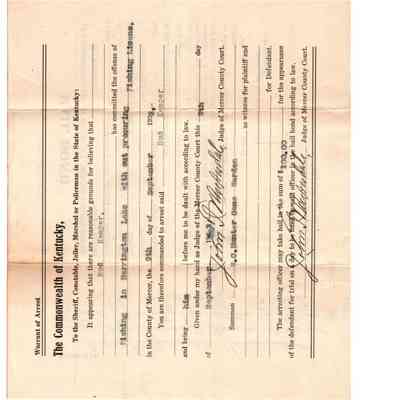 Warrant of Arrest
The Commonwealth of Kentucky,
To the Sheriff, Constable, Jailer, Marshal or Policeman in the State of Kentucky:
It appearing that there are reasonable grounds for believing that
Rod
has committed the offense of
Fishing in Herrington Lake with out procuring Fishing Licens,
in the County of Mercer, the 9th day of September 193
You are therefore commanded to arrest Rod
and bring him before me to be dealt with according to law.
Given under my hand as Judge of the Mercer County Court this 9th day
of September
Judge of Mercer County Court.
Summon Game Warden as witness for plaintiff and
for Defendant.
The arresting officer may take bail in the sum of $100.00 for the appearance
of the defendant for trial on a day to be fixed by said officer in the bail bond according to law.
Judge of Mercer County Court.